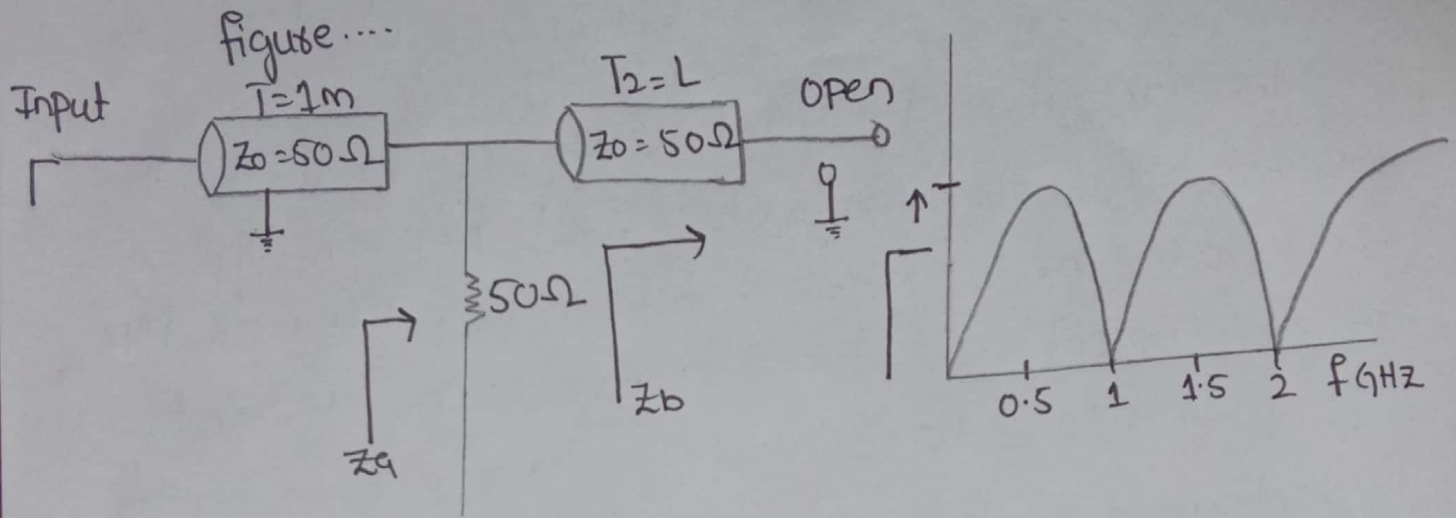 figure....
Input
T=1m
Z0=50Ω
T2=L
Z0=50Ω
open
50Ω
Za
Zb
0.5 1 1.5 2 f GHZ